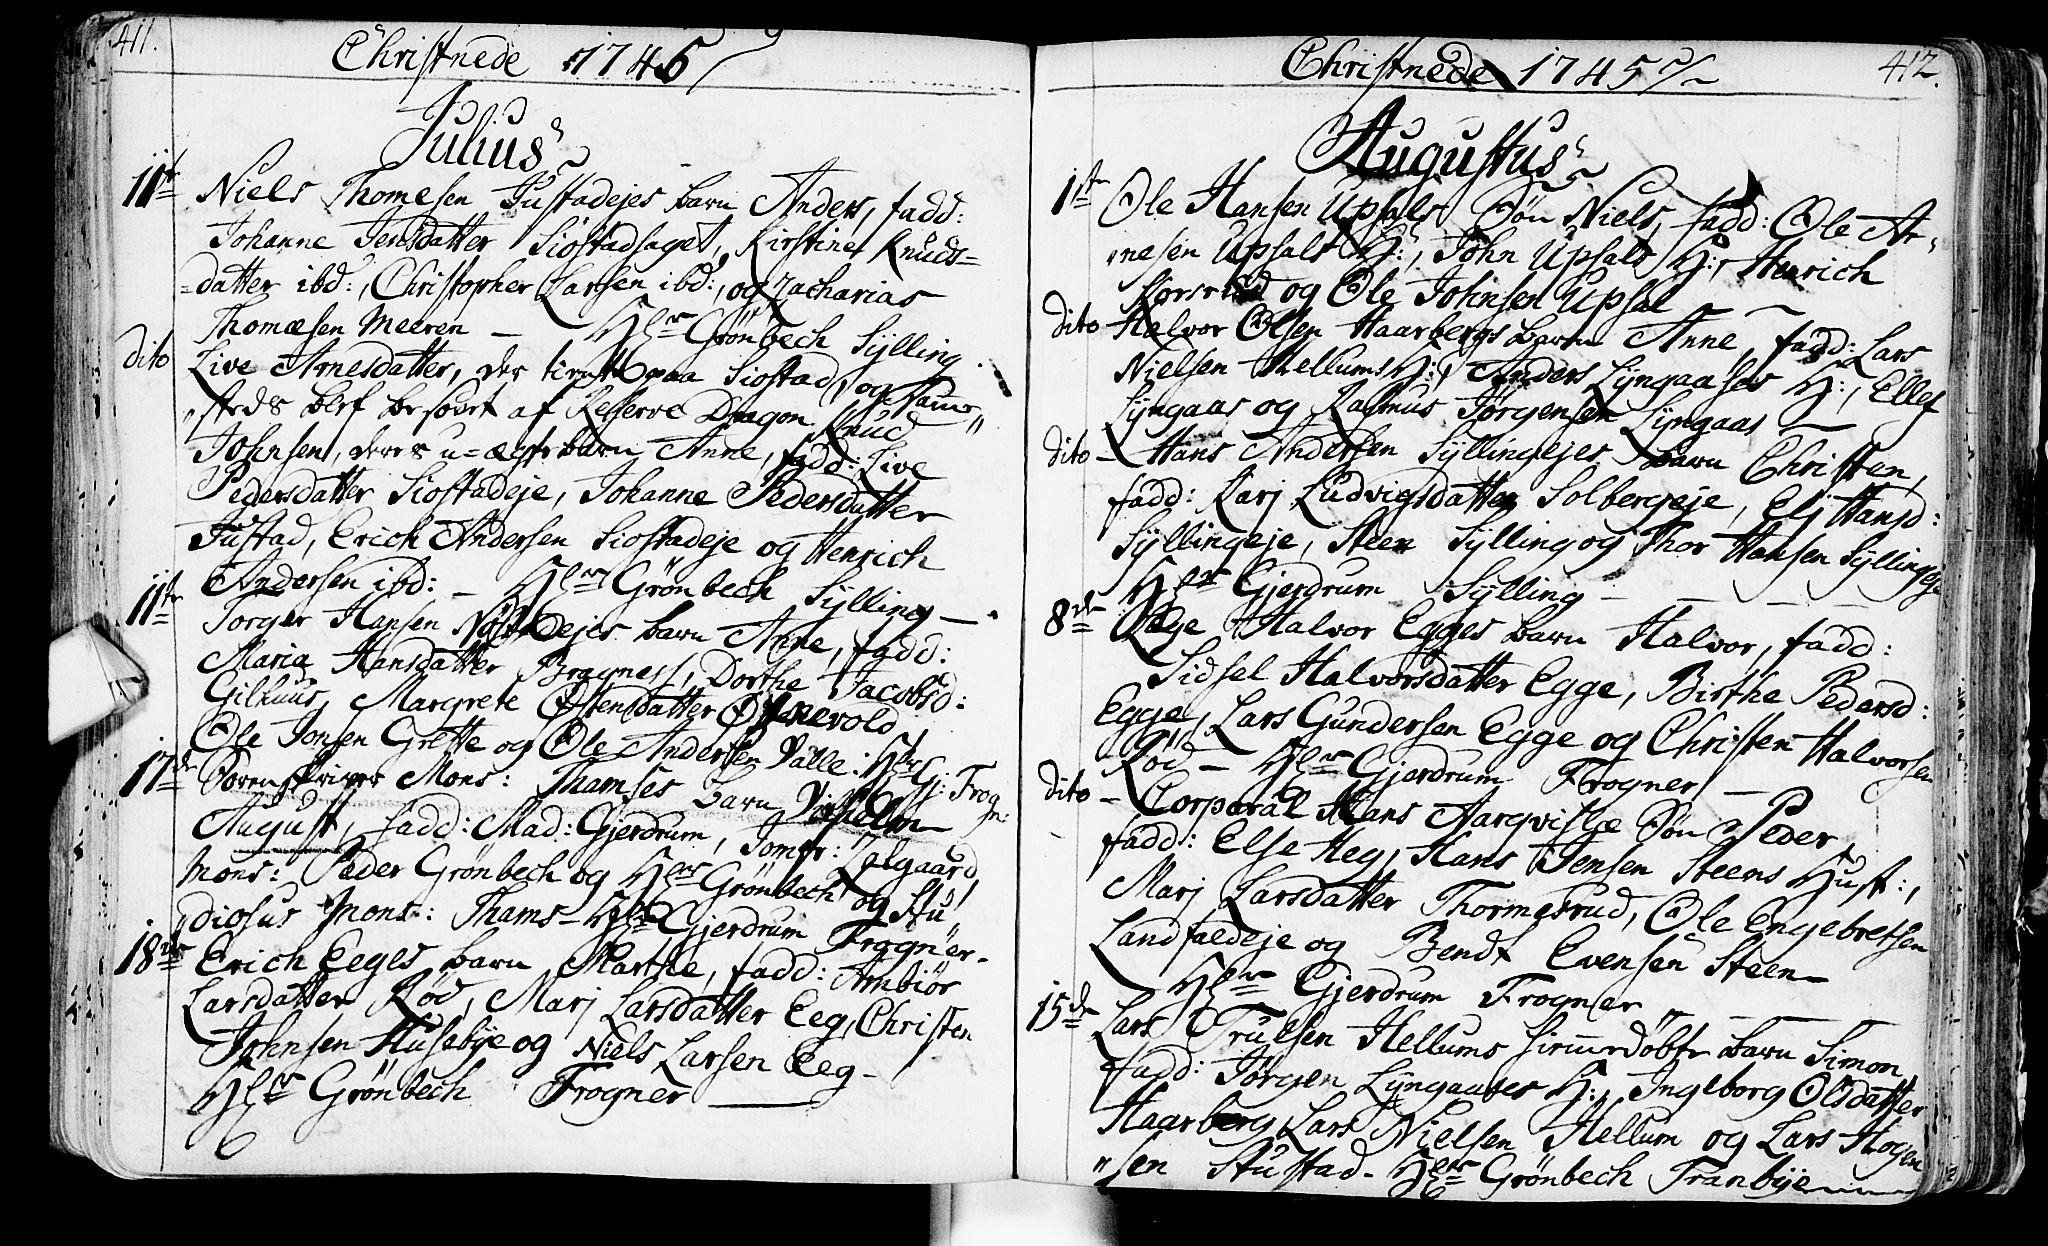 411.
Christnede 1745
Julius
11te Niels Thomesen Justadejes barn Anders, fadd:
Johanne Jensdatter Siøstadsaget, Kirstine Knuds=
=datter ibd:, Christopher Larsen ibd:, og Zacharias
Thomæsen Meeren — Hlr Grönbech Sylling
dito Live Arnesdatter, der tient paa Siøstad, og
steds besovet af Reserve Dragon Knud
Johnsen, deres u=ægte barn Anne, fadd: Live
Pedersdatter Siostadeje, Johanne Pedersdatter
Justad, Erich Andersen Siostadeje og Henrich
Andersen ibd: — Hlr Grönbech Sylling —
11te Torger Hansen ejes barn Anne, fadd:
Maria Hansdatter Bragness, Dorthe Jacobsd:
Gilhuus, Margrete Østensdatter Ørnevold,
Ole Jonsen Grette og Ole Andersen Valle: Hlr G: Frogn:
17de Sorenskriver Mons: Thamses barn Vilhelm
August, fadd: Mad: Gjerdrum, Jomfr: Dalgaard,
Mons: Peder Grönbech og Hlr Grönbech og Stu„
„diosus Mons: Thams — Hlr Gjerdrum Frogner —
18de Erich Eeges barn Marthe, fadd: Anbiør
Larsdatter Rød, Marj Larsdatter Eeg, Christen
Johnsen Husebye og Niels Larsen Eeg —
Hlr Grönbech Frogner —
412.
Christnede 1745
Augustus
1te Ole Hansen Upsals Søn Niels, fadd: Ole Ar„
„nesen Upsals H:, John Upsals H:, Henrich
Korsrud og Ole Johnsen Upsal —
dito Halvor Olsen Haarbergs barn Anne, fadd: Lars
Nielsen Hellums H:, Anders Lyngaases H:, Ellef
Lyngaas og Rasmus Jørgensen Lyngaas —
dito — Hans Andersen Syllingejes barn Christen,
fadd: Karj Ludvigsdatter Solbergeje, Elj Hansd:
Syllingeje, Steen Sylling og Thor Hansen Syllingeje
Hlr Gjerdrum Sylling —
8de Aage Halvor Egges barn Halvor, fadd:
Sidsel Halvorsdatter Egge, Birthe Pedersd:
Egge, Lars Gundersen Egge og Christen Halvorsen
Rød — Hlr Gjerdrum Frogner —
dito — Corporal Hans Aarqvislje Søn Peder,
fadd: Else Heg, Hans Jensen Steens Hust:,
Marj Larsdatter Thormesrud, Ole Engebretsen
Landfaldeje og Bendt Evensen Steen —
Hlr Gjerdrum Frogner —
15de Lars Trulsen Hellums hiemedöbte barn Simon,
fadd: Jörgen Lyngaases H:, Ingeborg Olsdatter
Haarberg, Lars Nielsen Hellum og Lars Hogen
„sen Stustad — Hlr Grönbech Tranbye —